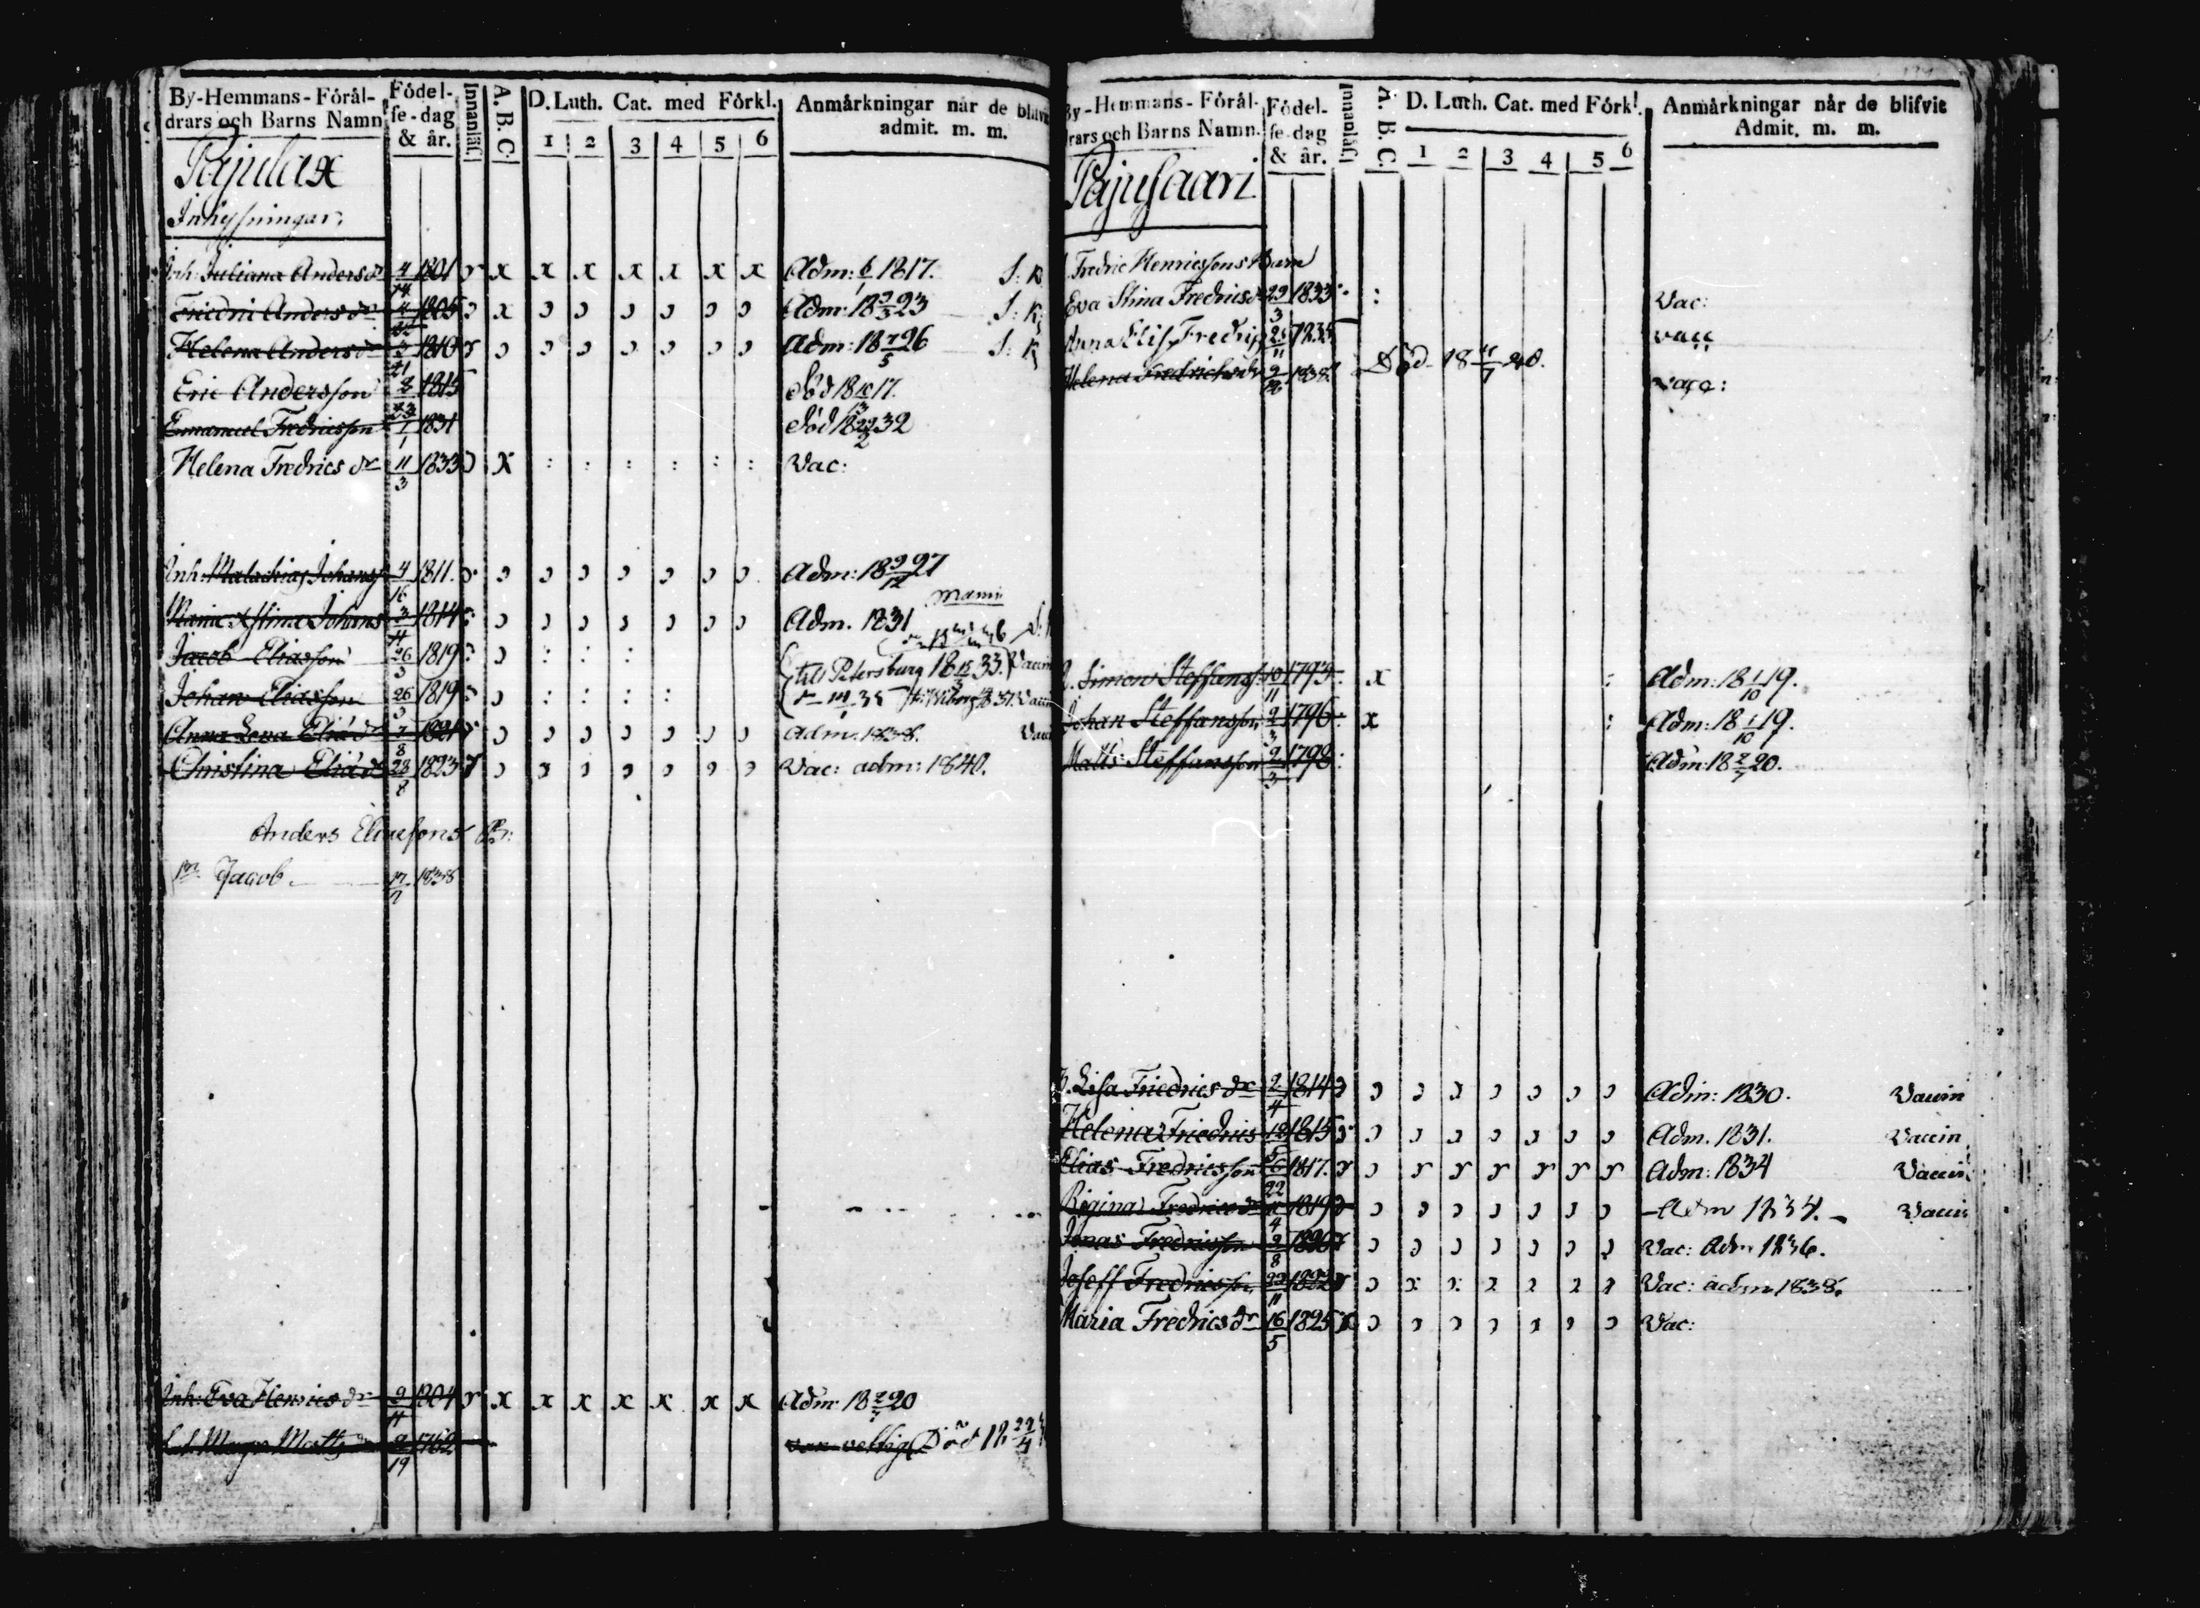 By-Hemmans-Förål-
drars och Barns Namn
Födel-
se-dag
& år.
Innanläs.
A. B. C.
D. Luth. Cat. med Förkl.
1 2 3 4 5 6
Anmärkningar når de blifvit
admit. m. m.
Pajulax
Inhysningar
Inh: Juliana Anders dr 4 1801 r x x x x x x x Adm: 1817. S: k
Friedri Anders dr 1805 x Adm: 18 9/3 23 S: k
Helena Anders dr 1810 r Adm: 18 7/5 26 S: k
Eric Andersson 8 1815 död 18 17.
Emanuel Fredricsson 1/1 1831 död 18 22/2 32
Helena Fredrics dr 11/3 1833 x : : : : : : Vac:
Inh: Malachias Johans 4 1811. Adm: 18 9/12 27
Maria Stina Johans 3 1814 Adm. 1831
Jacob Eliasson 26/3 1819 : : : till Petersburg 18 33. Vaccin
Johan Eliasson 26/3 1819 : : : :
Anna Leva Elia dr 1821 r adm. 1838.
Christina Elia dr 23/8 1823 r Vac: adm: 1840.
Anders Eliaesons B:
Jacob 17 1838
Inh: Eva Henrics dr 9/11 1804 r x x x x x x x Adm 18 2/7 20
Matts 9/19 1762 Död
By-Hemmans-Förål-
drars och Barns Namn.
Födel-
se-dag
& år.
Innanläs.
A. B. C.
D. Luth. Cat. med Förkl.
1 2 3 4 5 6
Anmärkningar når de blifvit
Admit. m. m.
Pajusaari
Fredric Henricssons Barn
Eva Stina Fredrics dr 29/3 1833 : Vac:
Anna Lisa Fredrics 1835 vacc
Helena Fredrichs dr 9 1838 Död 18 40. vacc:
Simon Steffans 10/11 1793 x : Adm: 18 1/10 19.
Johan Steffansson 2/3 1796 x : Adm: 18 1/10 19.
Matts: Steffansson 9/3 1798 : Adm: 18 2/7 20.
Lisa Friedrics dr 2/4 1814 Adm: 1830. Vaccin
Helena Friedrics 18/5 1815 Adm. 1831. Vaccin
Elias Fredricsson 6 1817. r r r r r r r Adm: 1834 Vaccin
Regina Fredrics dr 1819 Adm 1834. Vaccin
Jonas Fredricsson 9/8 1820 Vac: Adm 1836.
Joseff Fredricsson 23/11 1822 Vac: adm 1838.
Maria Fredrics dr 16/5 1825 Vac: